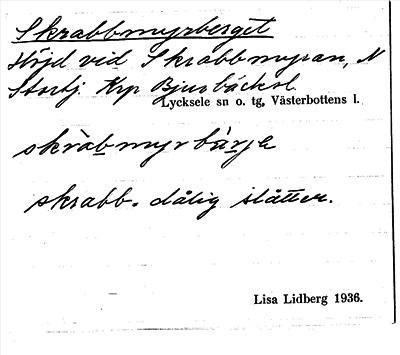 Skrabbmyrberget
Höjd vid Skrabbmyran, N
Storbj. Krp Bjurbäcksl.
Lycksele sn o. tg, Västerbottens l.
skràb myr bàrjε
skrabb = dålig slåtter.
Lisa Lidberg 1936.